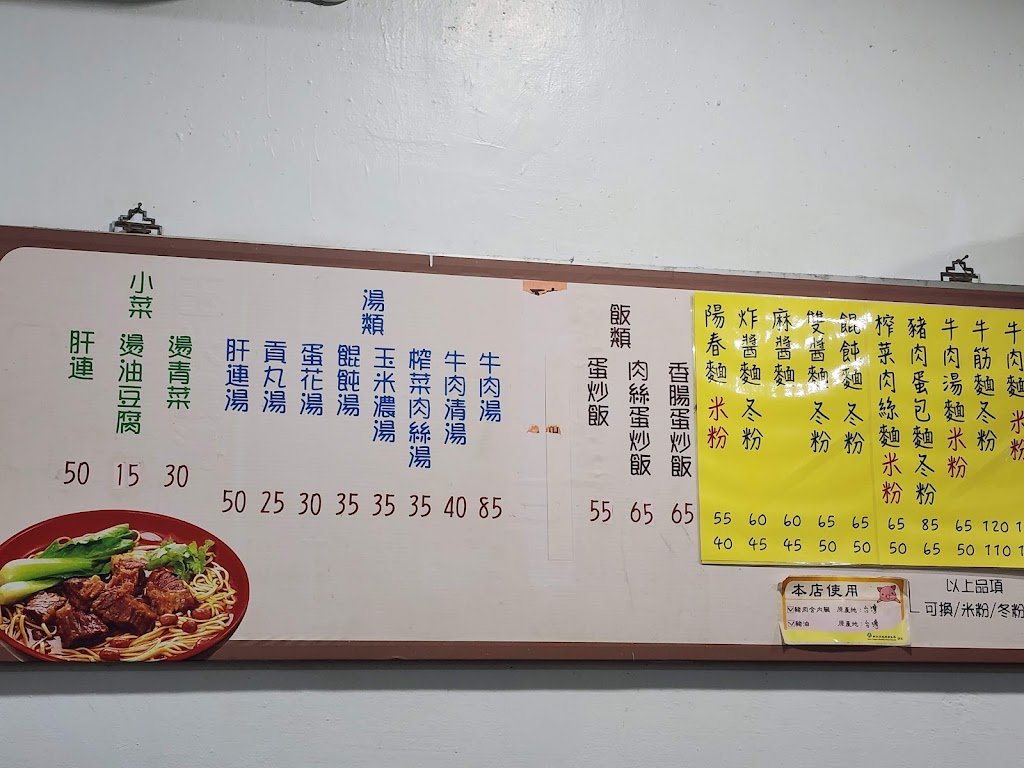 牛肉麵 米粉
牛筋麵 冬粉 120 110
牛肉湯麵 米粉 65 50
豬肉蛋包麵 冬粉 85 65
榨菜肉絲麵 米粉 65 50
餛飩麵 冬粉 65 50
雙醬麵 冬粉 65 50
麻醬麵 60 45
炸醬麵 冬粉 60 45
陽春麵 米粉 55 40
以上品項
可換/米粉/冬粉
本店使用
豬肉含內臟 原產地:台灣
豬油 原產地:台灣
飯類
香腸蛋炒飯 65
肉絲蛋炒飯 65
蛋炒飯 55
湯類
牛肉湯 85
牛肉清湯 40
榨菜肉絲湯 35
玉米濃湯 35
餛飩湯 35
蛋花湯 30
貢丸湯 25
肝連湯 50
小菜
燙青菜 30
燙油豆腐 15
肝連 50